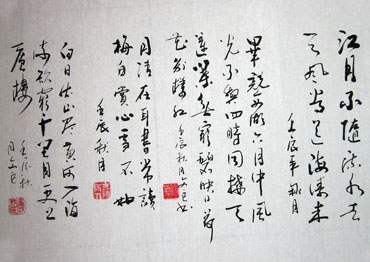 江月不随流水去
天风常送海涛来
壬辰年秋月
畢竟西湖六月中風
光不與四時同接天
蓮葉無窮碧映日荷
花别樣红 壬辰秋月
月清在耳書常讀
梅自賞心雪不如
壬辰秋月
白日依山尽黄河入海
流欲窮千里目更上
层樓
壬辰秋